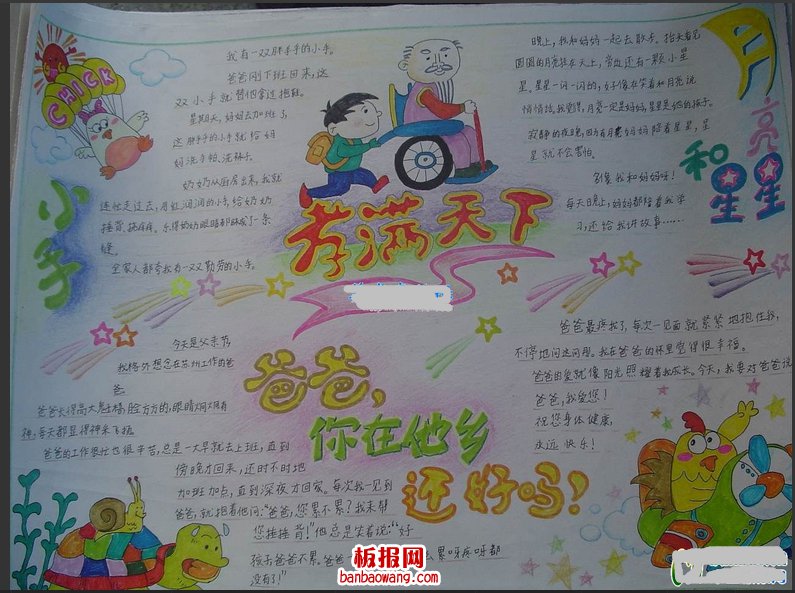 CHICK
小手
我有一双胖乎乎的小手。
爸爸刚下班回来,这
双小手就替他拿过拖鞋。
星期天,妈妈去加班了,
这胖乎乎的小手就给妈
妈洗手帕、洗袜子。
奶奶从厨房出来,我就
连忙走过去,用红润润的小手,给奶奶
捶背、挠痒痒。乐得奶奶眼睛都眯成了一条
缝。
全家人都夸我有一双勤劳的小手。
孝满天下
月亮和星星
晚上,我和妈妈一起去散步。抬头看见
圆圆的月亮挂在天上,旁边还有一颗小星
星。星星一闪一闪的,好像在笑着和月亮说
悄悄话。我觉得,月亮一定是妈妈,星星是她的孩子。
寂静的夜晚,因为有月亮妈妈陪着星星,星
星就不会害怕。
就像我和妈妈呀!
每天晚上,妈妈都陪着我学
习,还给我讲故事……
爸爸,
你在他乡
还好吗!
今天是父亲节,
我格外想念在苏州工作的爸
爸
爸爸长得高大魁梧,脸方方的,眼睛炯炯有
神,每天都显得神采飞扬。
爸爸的工作很忙也很辛苦,总是一大早就去上班,直到
傍晚才回来,还时不时地
加班加点,直到深夜才回家。每次我一见到
爸爸,就抱着他问:“爸爸,您累不累?我来帮
您捶捶背!”但总是笑着说:“好
孩子爸爸不累。爸爸一
累呀疼呀都
没有了!”
爸爸最疼我了,每次一见面就紧紧地抱住我,
不停地问这问那。我在爸爸的怀里觉得很幸福。
爸爸的爱就像阳光照耀着我成长。今天,我要对爸爸说
爸爸,我爱您!
祝您身体健康,
永远快乐!
板报网
banbaowang.com